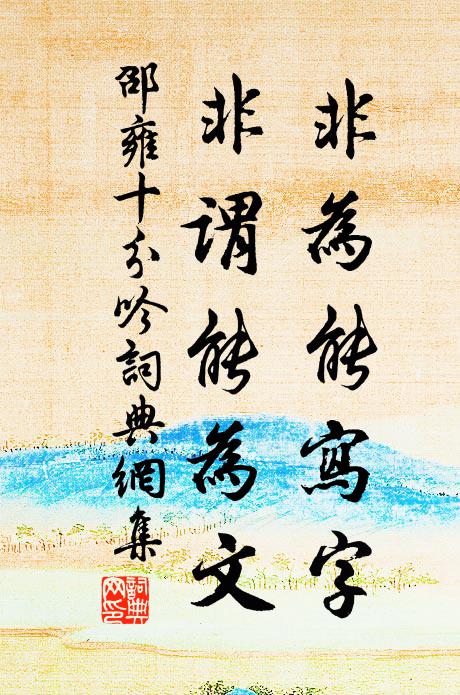 非為能寫字
非謂能為文
邵雍十分吟詞典網集
詞典
网印